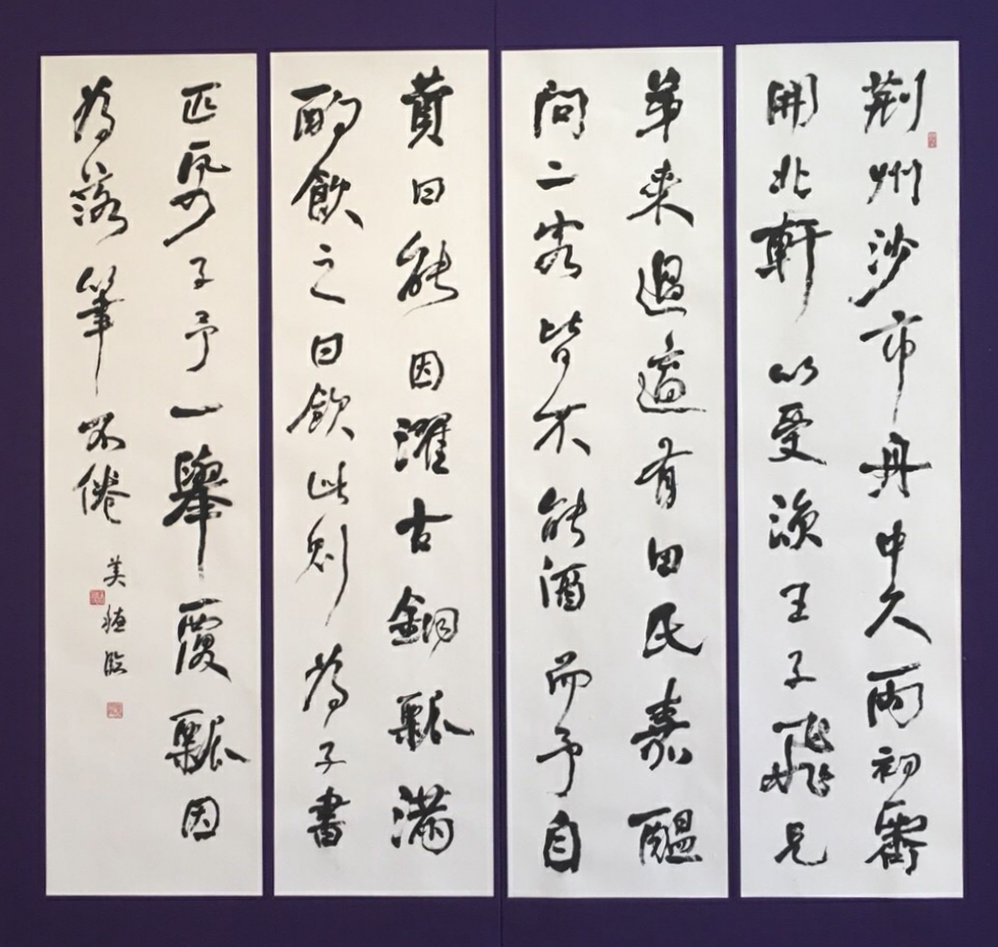 荊州沙市舟中久雨初霽
開北軒以受涼王子飛兄
弟來過適有田氏嘉醞
問二客皆不能酒而予自
賁曰能因濯古銅瓢滿
酌飲之曰飲此則為子書
匹子予一舉覆瓢因
為落筆不倦
美臨